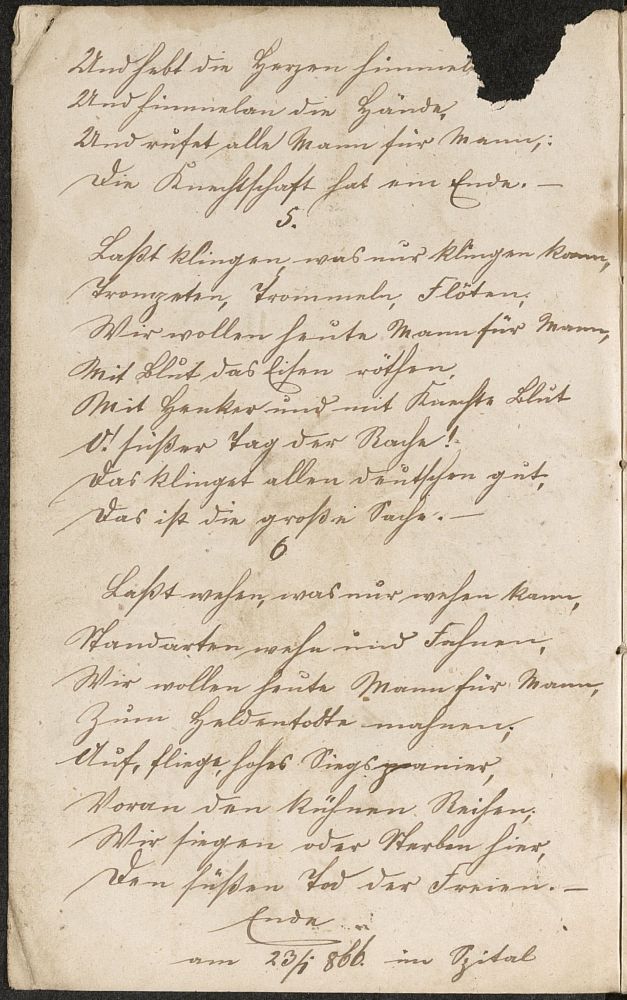 Und hebt die Herzen himmel
Und himmelan die Hände,
Und rufet alle Mann für Mann,:
Die Knechtschaft hat ein Ende. —
5.
Laßt klingen, was nur klingen kann,
Trompeten, Trommeln, Flöten,
Wir wollen heute Mann für Mann,
Mit Blut das Eisen röthen,
Mit Henker und mit Knechte Blut
O! süßer Tag der Rache!
Das klinget allen deutschen gut,
Das ist die große Sache. —
6
Laßt wehen, was nur wehen kann,
Standarten wehn und Fahnen,
Wir wollen heute Mann für Mann,
Zum Heldentodte mahnen;
Auf, fliege, hohes Siegspanier,
Voran den kühnen Reihen,
Wir siegen oder Sterben hier,
Den süßen Tod der Freien. —
Ende
am 23/1 866. im Spital